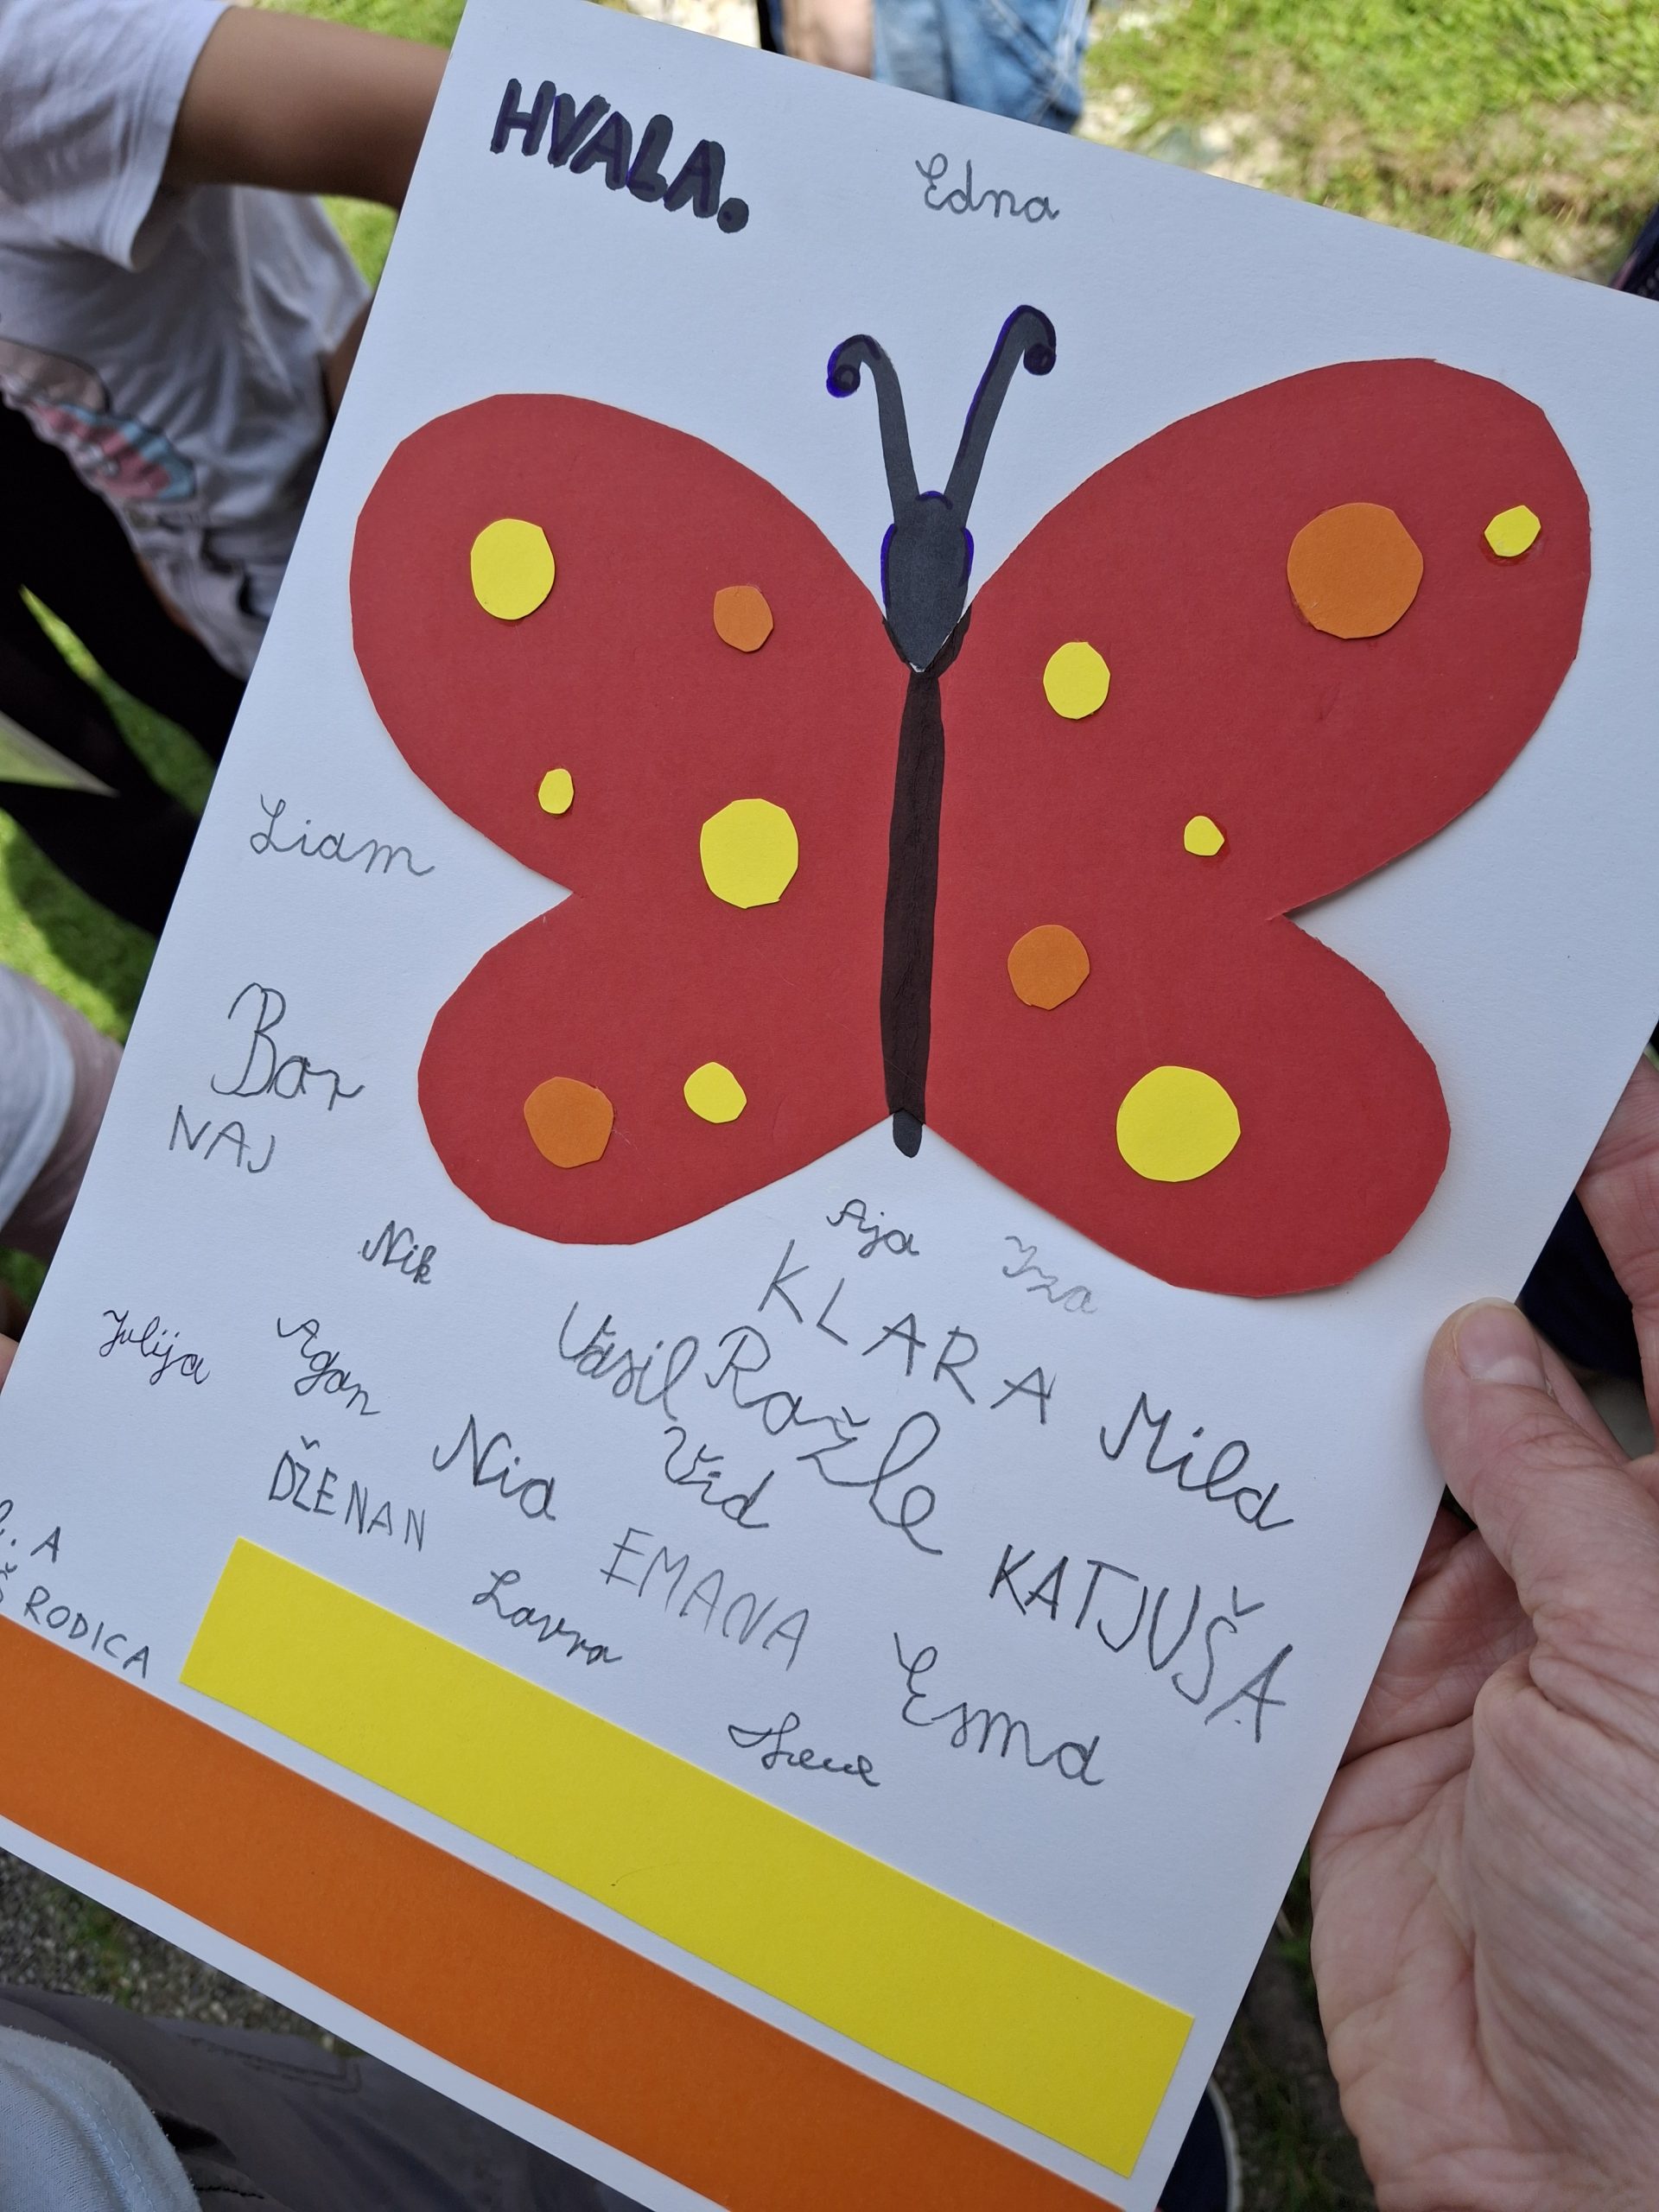 HVALA.
Edna
Liam
Bor
NAJ
Nik
Aja
Iza
KLARA
Julija
Agan
Vasil
Ražle
Mila
Nia
Vid
DŽENAN
EMANA
KATJUŠA
. A
Š RODICA
Lavra
Esma